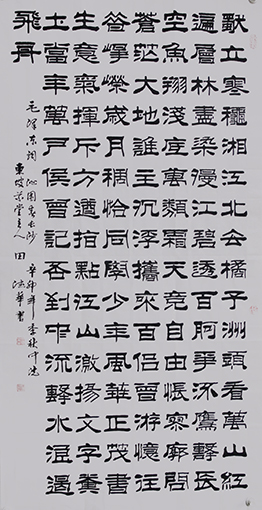 獨立寒穐湘江北去橘子洲頭看萬山紅
遍層林盡染漫江碧透百舸爭流鷹擊長
空魚翔淺底萬類霜天競自由悵寥廓問
蒼茫大地誰主沉浮攜來百侶曾游憶往
昔崢嶸歲月稠恰同學少年風華正茂書
生意氣揮斥方遒指點江山激揚文字糞
土當年萬戶侯曾記否到中流擊水浪遏
飛舟
毛澤東詞 沁園春長沙 辛卯年季秋中浣
東坡 堂主人 田 華書